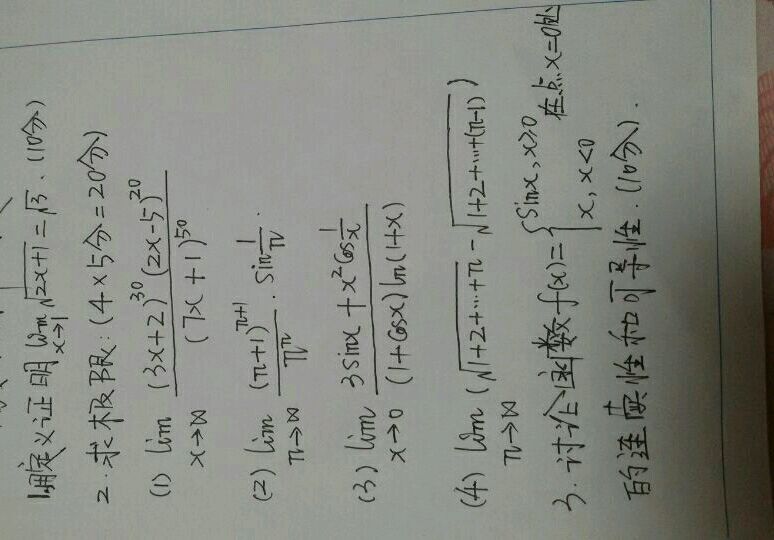 1.用定义证明 lim x→1 √(2x+1) = √3 . (10分)
2. 求极限: (4×5分=20分)
(1) lim x→∞ (3x+2)^30 (2x-5)^20 / (7x+1)^50
(2) lim n→∞ (n+1)^(n+1) / n^n · sin 1/n .
(3) lim x→0 (3sinx + x² cos 1/x) / ((1+cosx) ln(1+x))
(4) lim n→∞ (√(1+2+…+n) - √(1+2+…+(n-1)))
3. 讨论函数 f(x) = { sinx, x≥0 ; x, x<0 在点 x=0处
的连续性和可导性. (10分).